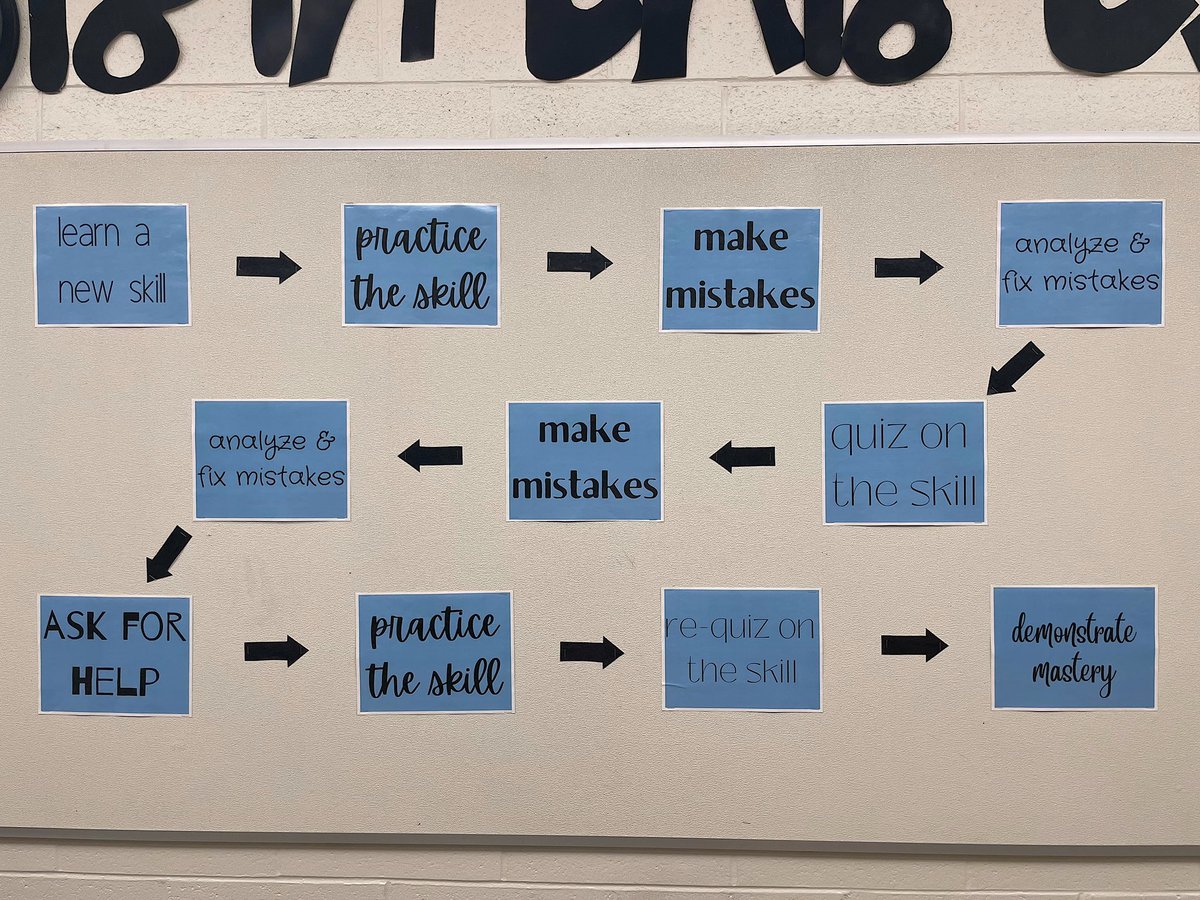 learn a
new skill
practice
the skill
make
mistakes
analyze &
fix mistakes
quiz on
the skill
make
mistakes
analyze &
fix mistakes
ASK FOR
HELP
practice
the skill
re-quiz on
the skill
demonstrate
mastery